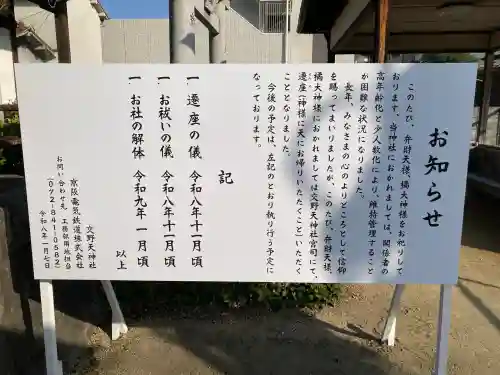 お知らせ
このたび、弁財天様、橘大神様をお祀りして
おります、当神社におかれましては、関係者の
高年齢化と少人数化により、維持管理すること
が困難な状況になりました。
長年、みなさまの心のよりどころとして信仰
を賜ってまいりましたが、このたび、弁財天様、
橘大神様におかれましては交野天神社宮司にて、
遷座（神様に天にお帰りいただくこと）いただく
こととなりました。
今後の予定は、左記のとおり執り行う予定に
なっております。
記
一 遷座の儀 令和八年十一月頃
一 お祓いの儀 令和八年十二月頃
一 お社の解体 令和九年一月頃
以上
交野天神社
京阪電気鉄道株式会社
お問い合わせ先 工務部用地担当
（072-841-0582）
令和八年一月頃